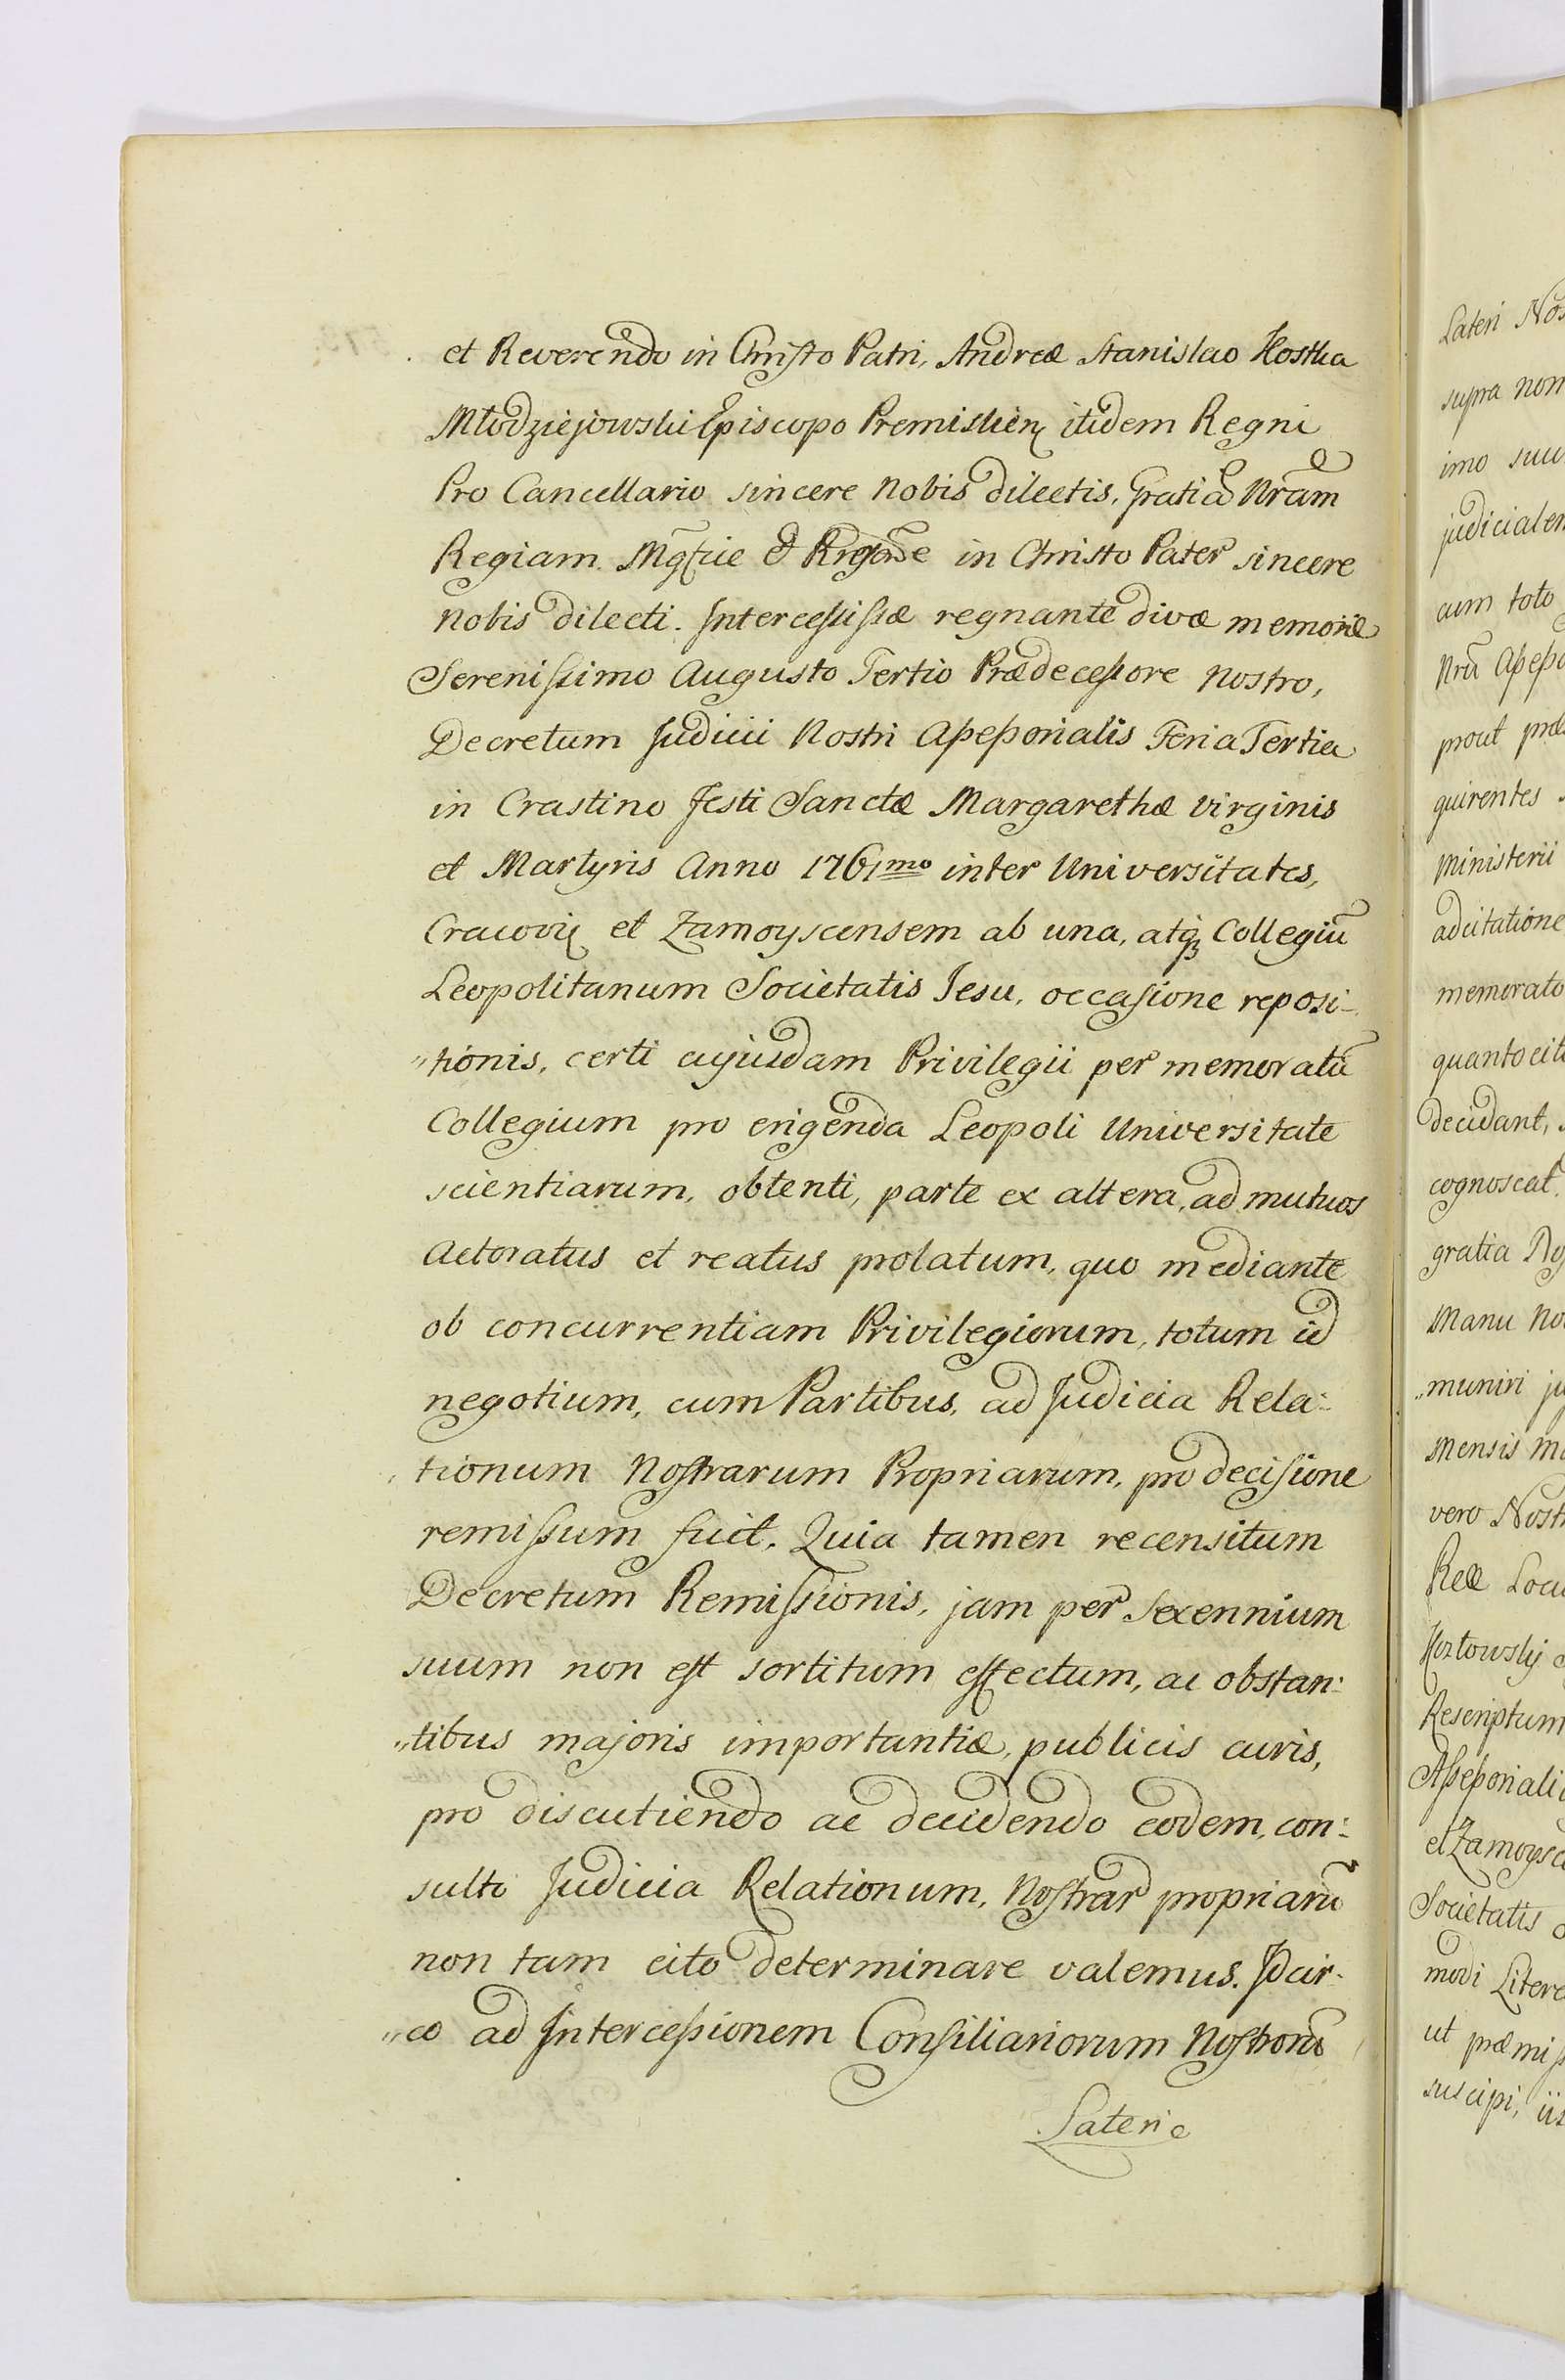 et Reverendo in Christo Patri, Andreæ Stanislao Kostka
Młodziejowski Episcopo Premislień itidem Regni
Pro Cancellario sincere Nobis dilectis, Gratiã Nrãm
Regiam. Mgfice & Rnde in Christo Pater sincere
Nobis dilecti. Intercessisse regnante divæ memoriæ
Serenissimo Augusto Tertio Prædecessore Nostro,
Decretum Judicii Nostri Assessorialis Feria Tertia
in Crastino Festi Sanctæ Margarethæ Virginis
et Martyris Anno 1761mo inter Universitates,
Cracovień et Zamoyscensem ab una, atq Collegiũ
Leopolitanum Societatis Jesu, occasione reposi-
"tionis, certi cujusdam Privilegii per memoratũ
Collegium pro erigenda Leopoli Universitate
scientiarum, obtenti, parte ex altera, ad mutuos
Actoratus et reatus prolatum, quo mediante
ob concurrentiam Privilegiorum, totum id
negotium, cum Partibus, ad Judicia Rela:
"tionum Nostrarum Propriarum, pro decisione
remissum fuit. Quia tamen recensitum
Decretum Remissionis, jam per Sexennium
suum non est sortitum effectum, ac obstan:
"tibus majoris importantiæ, publicis curis,
pro discutiendo ac decidendo eodem, con:
sulto Judicia Relationum, Nostrar propriarũ
non tam cito determinare valemus. Idcir-
"co ad Intercessionem Consiliariorum Nostrorũ
Lateri
Lateri Nos
supra nom
imo suu
judicialem
cum toto
Nrã Assesso
prout præ
quirentes
Ministerii
adcitatione
memorato
quanto cit
decidant,
cognoscat,
gratia
Manu No
"muniri ju
Mensis M
vero Nostr
Rex Loc
Kozłowsky
Rescriptum
Assessoriali
et Zamoysc
Societatis
modi Litere
ut præmiss
suscipi, iis